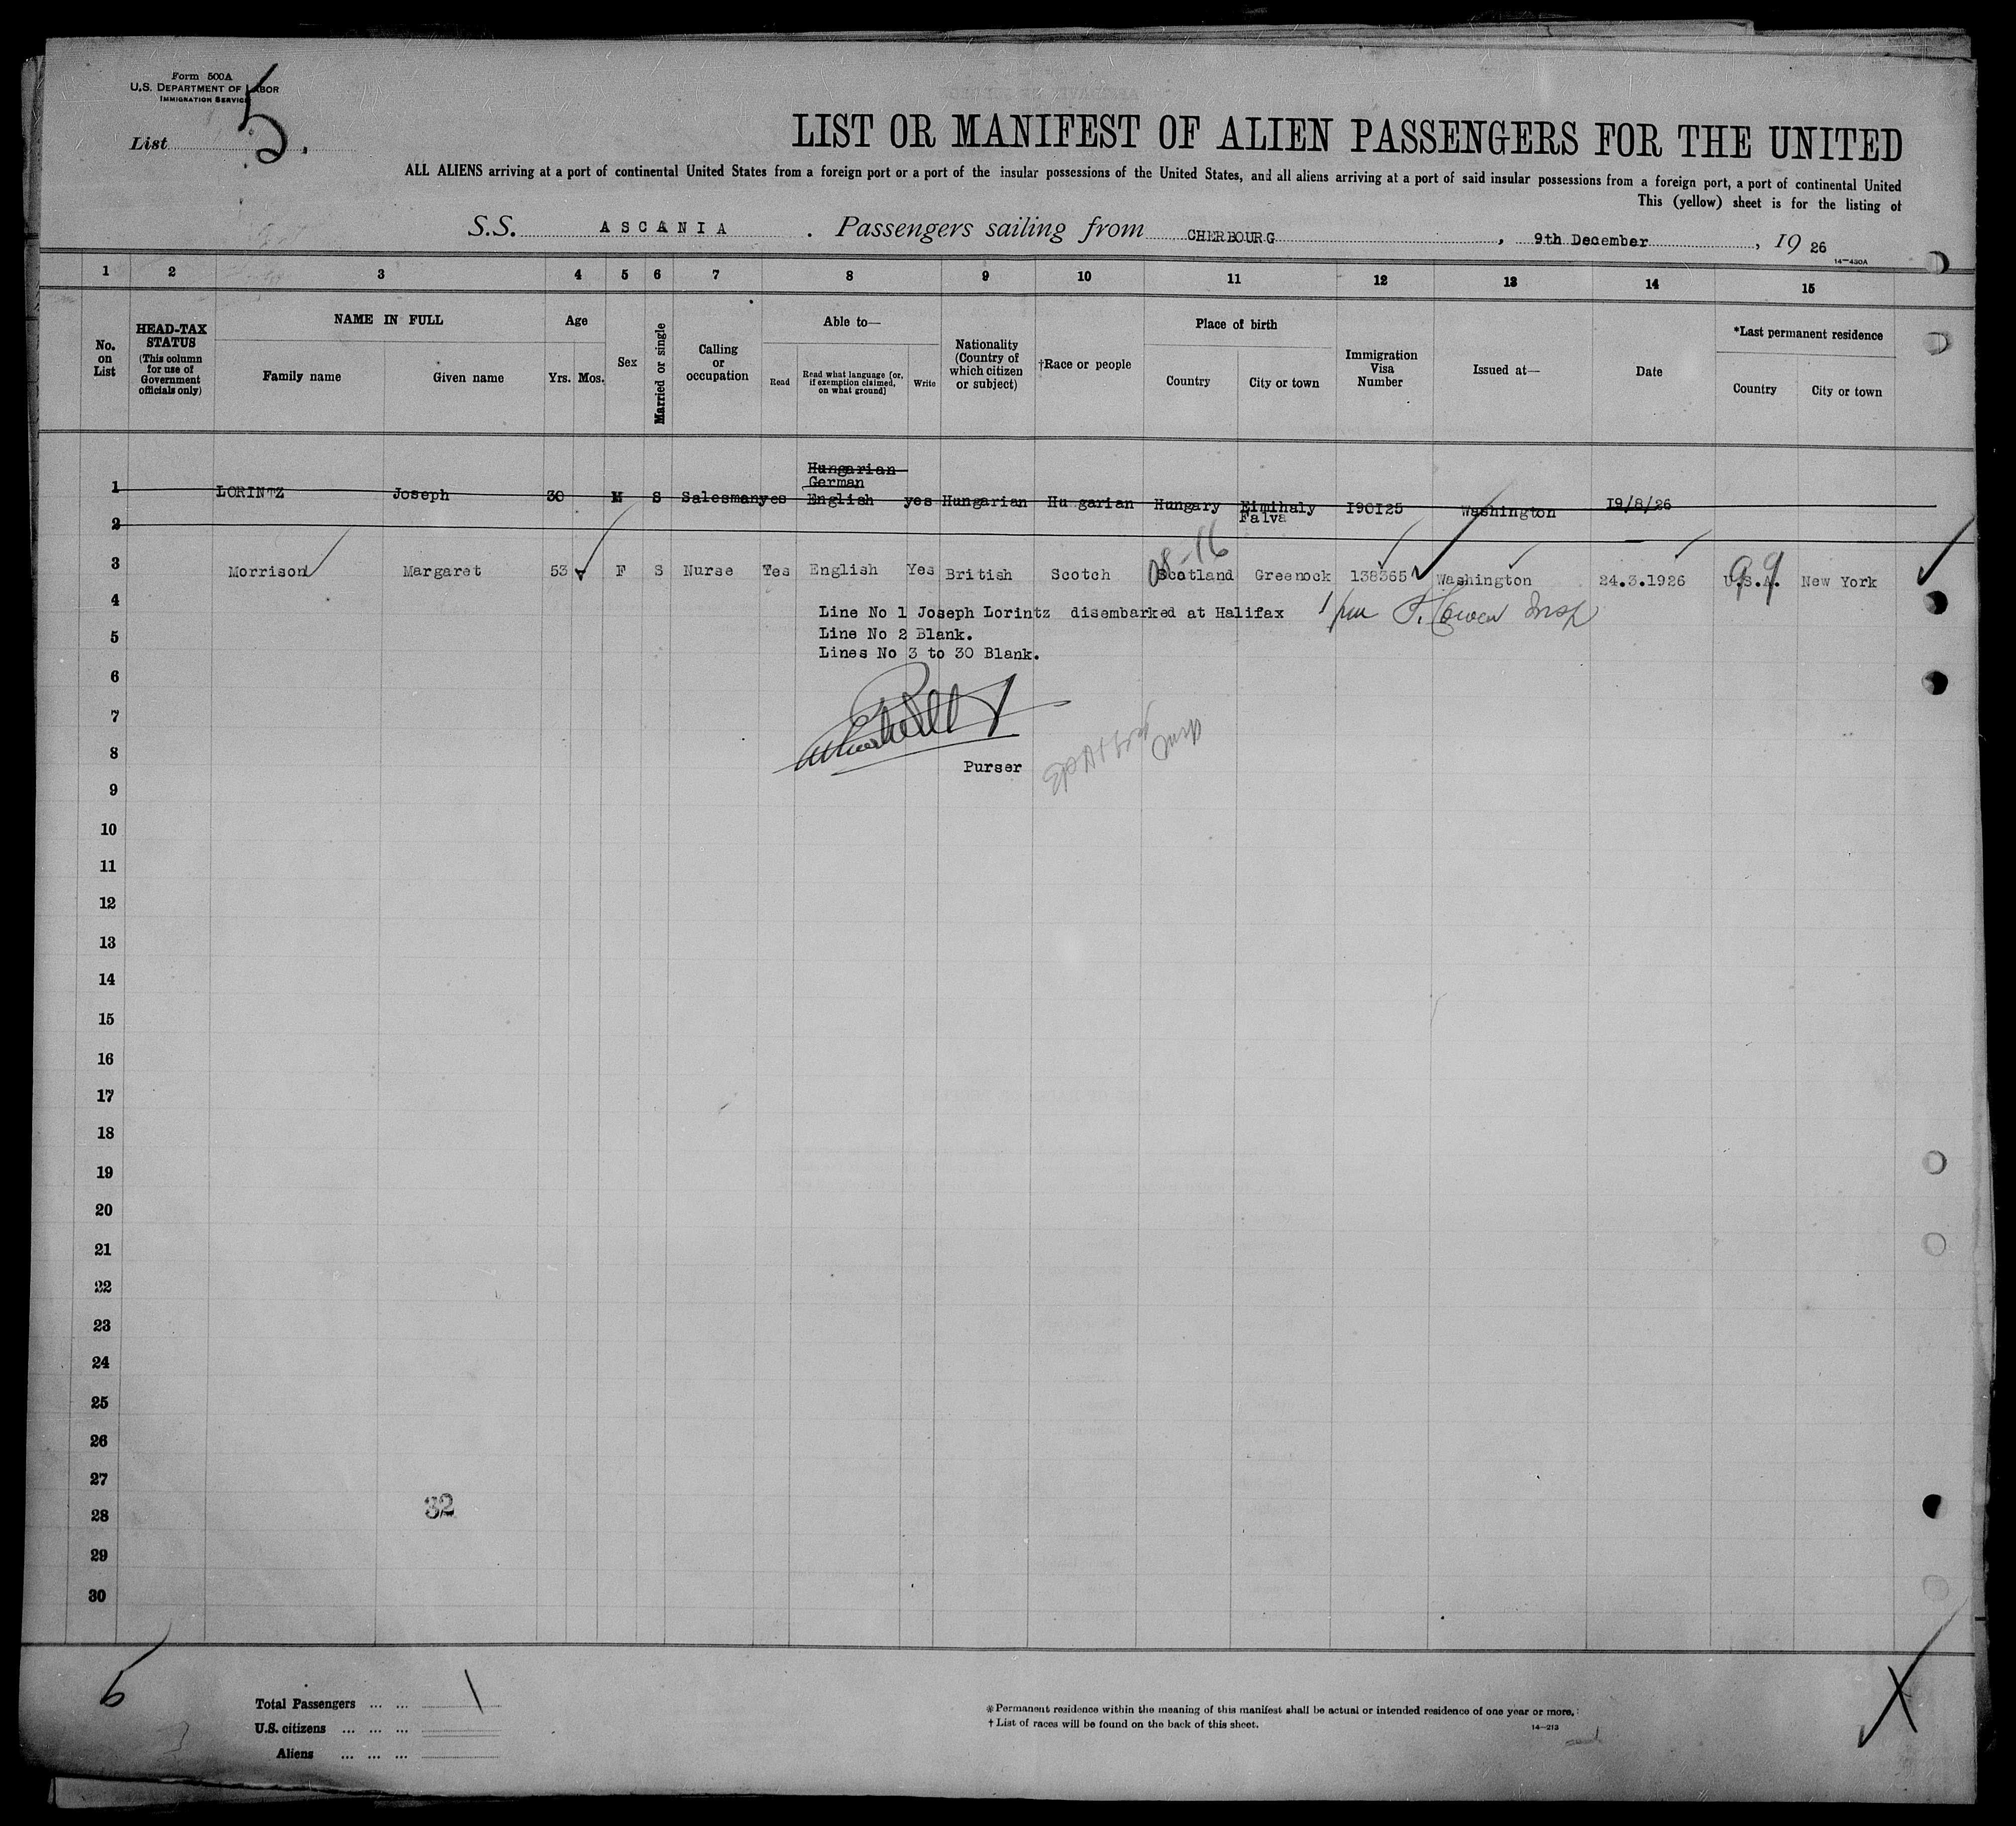 Form 500A
U.S. DEPARTMENT OF LABOR
IMMIGRATION SERVICE
List 5.
LIST OR MANIFEST OF ALIEN PASSENGERS FOR THE UNITED
ALL ALIENS arriving at a port of continental United States from a foreign port or a port of the insular possessions of the United States, and all aliens arriving at a port of said insular possessions from a foreign port, a port of continental United
This (yellow) sheet is for the listing of
S.S. ASCANIA . Passengers sailing from CHERBOURG , 9th December , 19 26
14—430A
1 2 3 4 5 6 7 8 9 10 11 12 13 14 15
No. on List
HEAD-TAX STATUS
(This column for use of Government officials only)
NAME IN FULL
Family name Given name
Age
Yrs. Mos.
Sex
Married or single
Calling or occupation
Able to—
Read Read what language [or, if exemption claimed, on what ground] Write
Nationality (Country of which citizen or subject)
†Race or people
Place of birth
Country City or town
Immigration Visa Number
Issued at—
Date
*Last permanent residence
Country City or town
Hungarian
German
1 LORINTZ Joseph 30 M S Salesman yes English yes Hungarian Hu garian Hungary Eimihaly I90I25 Washington I9/8/26
Falva
2
08-16
3 Morrison Margaret 53 F S Nurse Yes English Yes British Scotch Scotland Greenock 138365 Washington 24.3.1926 U.S.A. 99 New York
4 Line No 1 Joseph Lorintz disembarked at Halifax
5 Line No 2 Blank.
Lines No 3 to 30 Blank.
6
7
8
Purser
9
10
11
12
13
14
15
16
17
18
19
20
21
22
23
24
25
26
27
32
28
29
30
Total Passengers ... ... 1
U.S. citizens ... ... ...
Aliens ... ... ...
* Permanent residence within the meaning of this manifest shall be actual or intended residence of one year or more.
† List of races will be found on the back of this sheet.
14—213